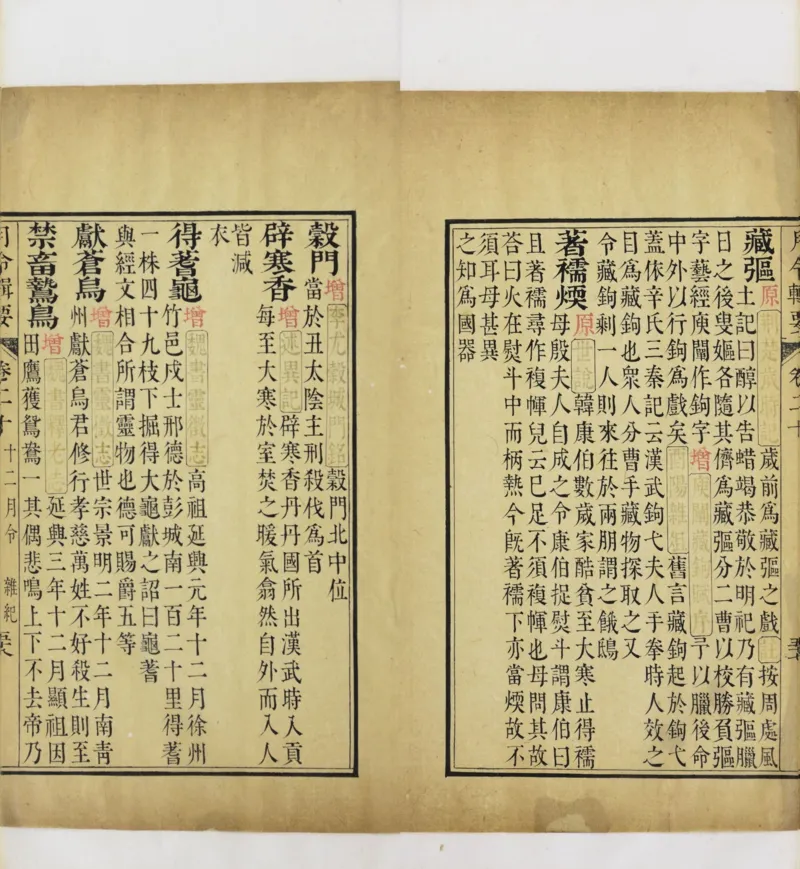 月令輯要 卷二十
藏彄 原 歲前爲藏彄之戲 按周處風
土記曰醇以告蜡竭恭敬於明祀乃有藏彄臘
日之後叟嫗各隨其儕爲藏彄分二曹以校勝負彄
字藝經庾闡作鉤字 增 予以臘後命
中外以行鉤爲戲矣 酉陽雜俎 舊言藏鉤起於鉤弋
蓋依辛氏三秦記云漢武鉤弋夫人手拳時人效之
目爲藏鉤也衆人分曹手藏物探取之又
令藏鉤剩一人則來往於兩朋謂之餓鴟
著襦煗 原 世說 韓康伯數歲家酷貧至大寒止得襦
母殷夫人自成之令康伯捉熨斗謂康伯曰
且著襦尋作複㡓兒云已足不須複㡓也母問其故
答曰火在熨斗中而柄熱今旣著襦下亦當煗故不
須耳母甚異
之知爲國器
榖門 增 李尤榖城門銘 榖門北中位
當於丑太陰主刑殺伐爲首
辟寒香 增 述異記 辟寒香丹丹國所出漢武時入貢
每至大寒於室焚之暖氣翕然自外而入人
皆減
衣
得蓍龜 增 魏書靈徵志 高祖延興元年十二月徐州
竹邑戍士邢德於彭城南一百二十里得蓍
一株四十九枝下掘得大龜獻之詔曰龜蓍
與經文相合所謂靈物也德可賜爵五等
獻蒼烏 增 魏書靈徵志 世宗景明二年十二月南靑
州獻蒼烏君修行孝慈萬姓不好殺生則至
禁畜鷙鳥 增 魏書釋老志 延興三年十二月顯祖因
田鷹獲鴛鴦一其偶悲鳴上下不去帝乃
月令輯要 卷二十 十二月令 雜紀